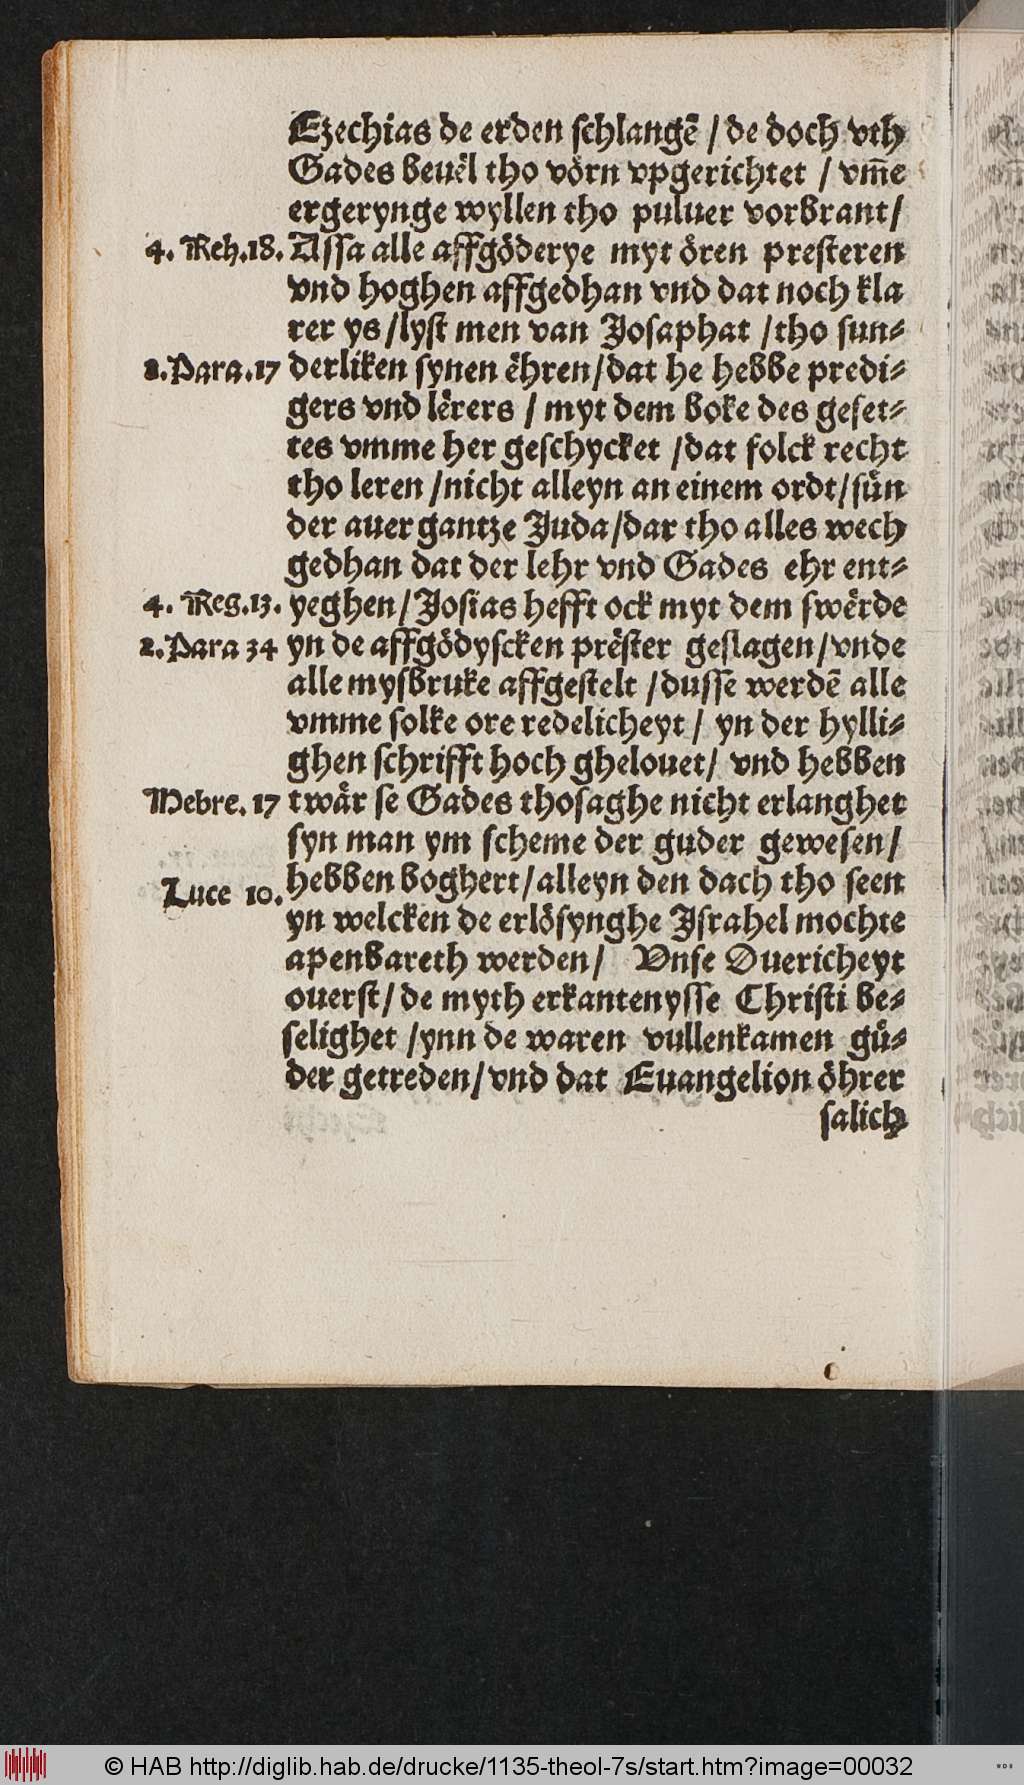 Ezechias de erden schlangē / de doch vth
Gades beuēl tho vörn vpgerichtet / vm̄e
ergerynge wyllen tho puluer vorbrant /
4. Reh. 18. Assa alle affgöderye myt ören presteren
vnd hoghen affgedhan vnd dat noch kla
rer ys / lyst men van Josaphat / tho sun⸗
2. Para. 17 derliken synen ëhren / dat he hebbe predi⸗
gers vnd lërers / myt dem boke des geset⸗
tes vmme her geschycket / dat folck recht
tho leren / nicht alleyn an einem ordt / sün
der auer gantze Juda / dar tho alles wech
gedhan dat der lehr vnd Gades ehr ent⸗
4. Reg. 13. yeghen / Josias hefft ock myt dem swërde
2. Para 34 yn de affgödyscken prëster geslagen / vnde
alle mysbruke affgestelt / dusse werdē alle
vmme solke ore redelicheyt / yn der hylli⸗
ghen schrifft hoch ghelouet / vnd hebben
Hebre. 17 twår se Gades thosaghe nicht erlanghet
syn man ym scheme der guder gewesen /
hebben boghert / alleyn den dach tho seen
Luce 10.
yn welcken de erlösynghe Jsrahel mochte
apenbareth werden / Vnse Ouericheyt
ouerst / de myth erkantenysse Christi be⸗
selighet / ynn de waren vullenkamen gů⸗
der getreden / vnd dat Euangelion öhrer
salich
© HAB http://diglib.hab.de/drucke/1135-theol-7s/start.htm?image=00032